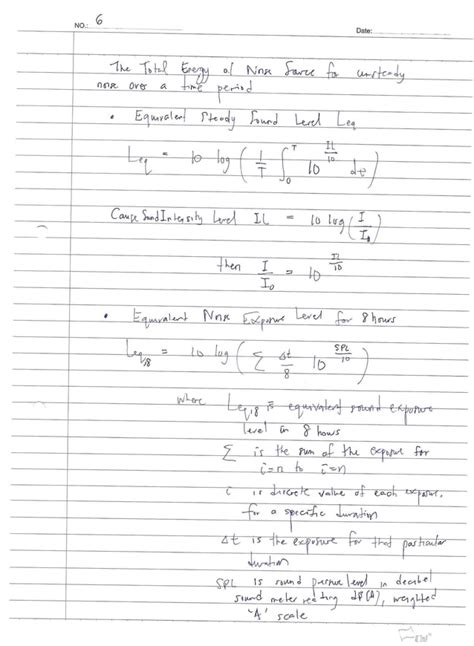 NO.: 6
Date:
The Total Energy of Noise Source for unsteady
noise over a time period
• Equivalent Steady Sound Level Leq
Leq = 10 log ( 1/T ∫₀ᵀ 10^(IL/10) dt )
Cause Sound Intensity Level IL = 10 log ( I/I₀ )
then I/I₀ = 10^(IL/10)
• Equivalent Noise Exposure Level for 8 hours
Leq,8 = 10 log ( Σ Δt/8 10^(SPL/10) )
where Leq,8 is equivalent sound exposure
level in 8 hours
Σ is the sum of the exposure for
i=n to i=n
i is discrete value of each exposure.
for a specific duration
Δt is the exposure for that particular
duration
SPL is sound pressure level in decibel
sound meter reading dB(A), weighted
'A' scale